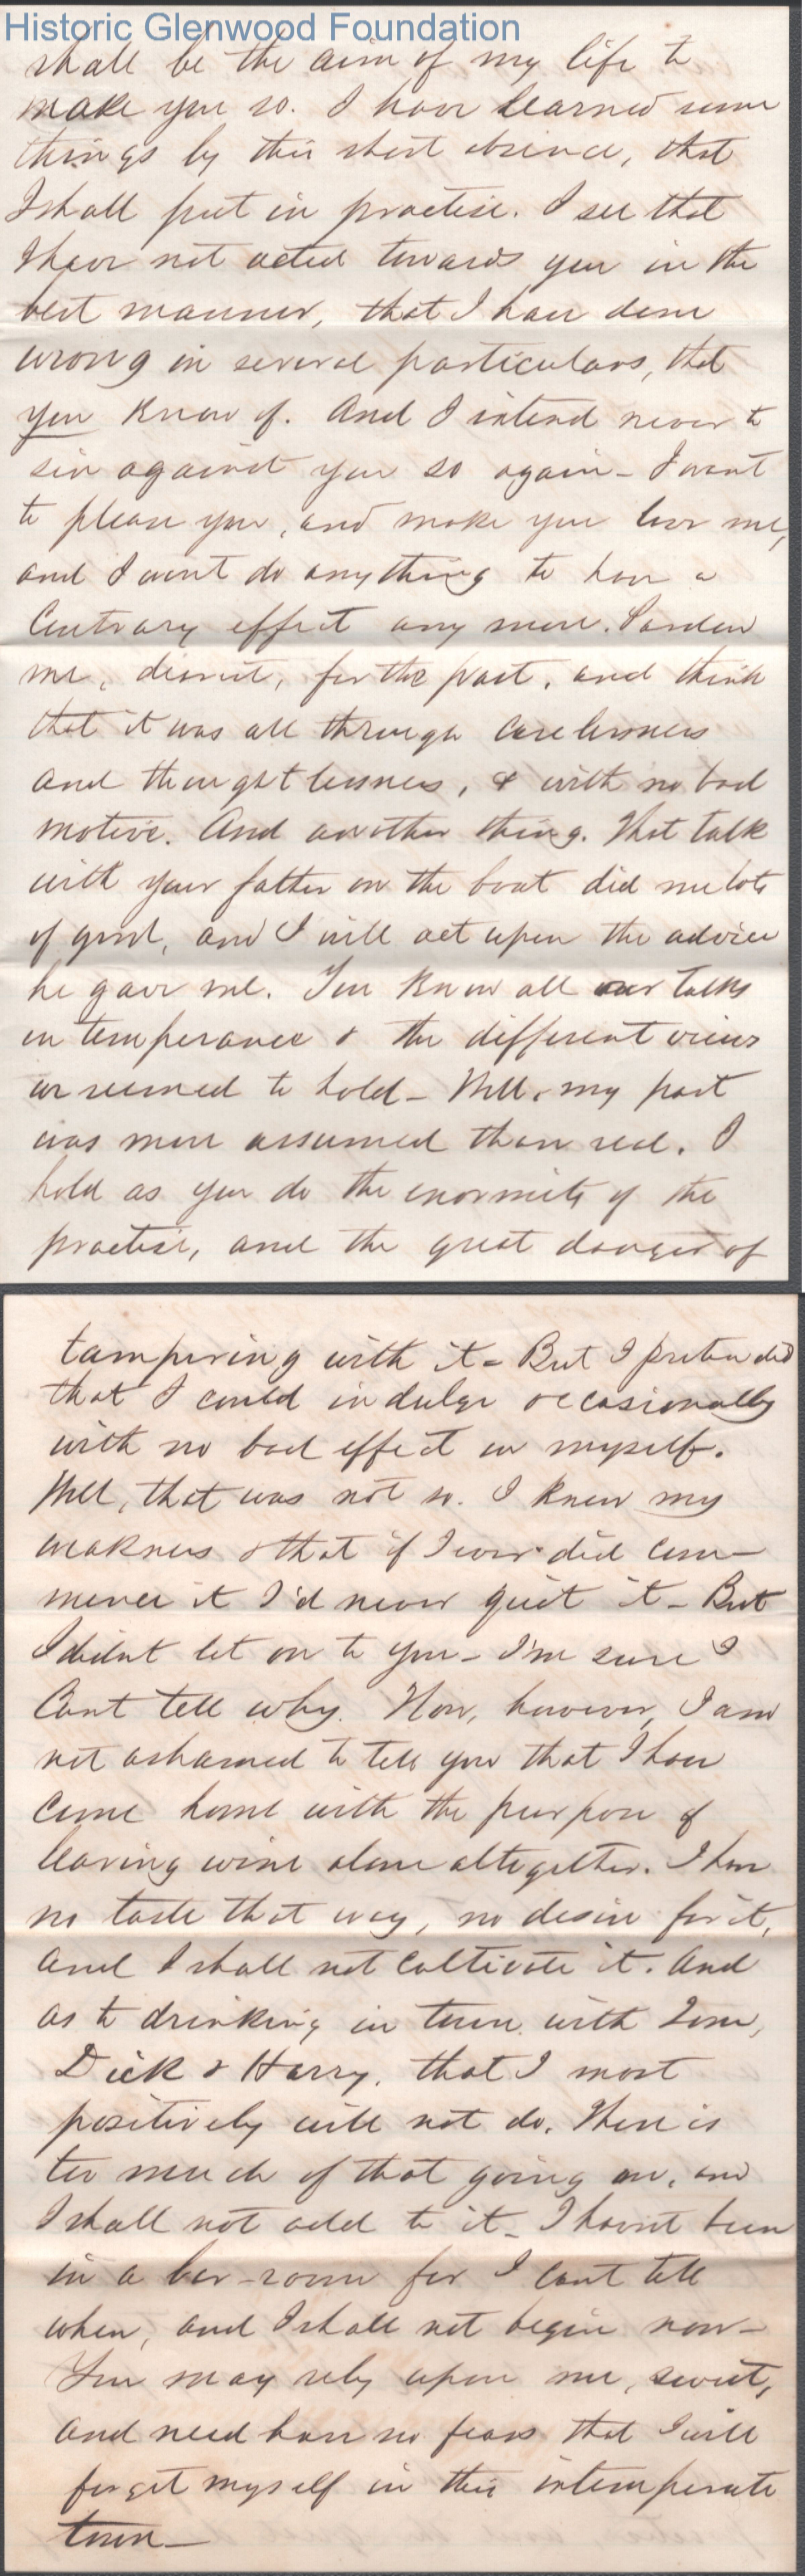 Historic Glenwood Foundation
shall be the aim of my life to
make you so. I have learned some
things by this short absence, that
I shall put in practise. I see that
I have not acted towards you in the
best manner, that I have done
wrong in several particulars, that
you know of. And I intend never to
sin against you so again - I want
to please you, and make you love me,
and I wont do anything to have a
Contrary effect any more. Pardon
me, dearest, for the past, and think
that it was all through Carelessness
and thoughtlessness, & with no bad
motive. And another thing. That talk
with your father on the boat did me lots
of good, and I will act upon the advice
he gave me. You know all our talks
on temperance & the different views
we seemed to hold - Well, my part
was more assumed than real. I
hold as you do the enormity of the
practise, and the great danger of
tampering with it - But I pretended
that I could indulge occasionally
with no bad effect on myself.
Well, that was not so. I knew my
weakness & that if I ever did com-
mence it I'd never quit it - But
I didnt let on to you - I'm sure I
Cant tell why. Now, however, I am
not ashamed to tell you that I have
come home with the purpose of
leaving wine alone altogether. I have
no taste that way, no desire for it,
and I shall not cultivate it. And
as to drinking in town with Tom,
Dick & Harry, that I most
positively will not do. There is
too much of that going on, and
I shall not add to it - I havnt been
in a bar-room for I cant tell
when, and I shall not begin now -
You may rely upon me, sweet,
and need have no fears that I will
forget myself in this intemperate
town -